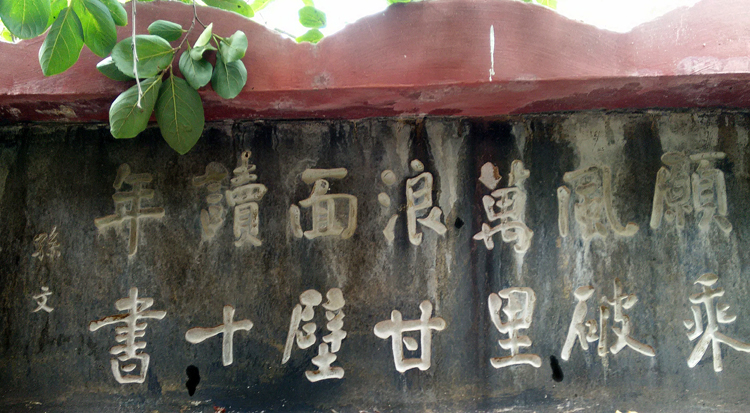 願乘
風破
萬里
浪甘
面壁
讀十
年書
孫文